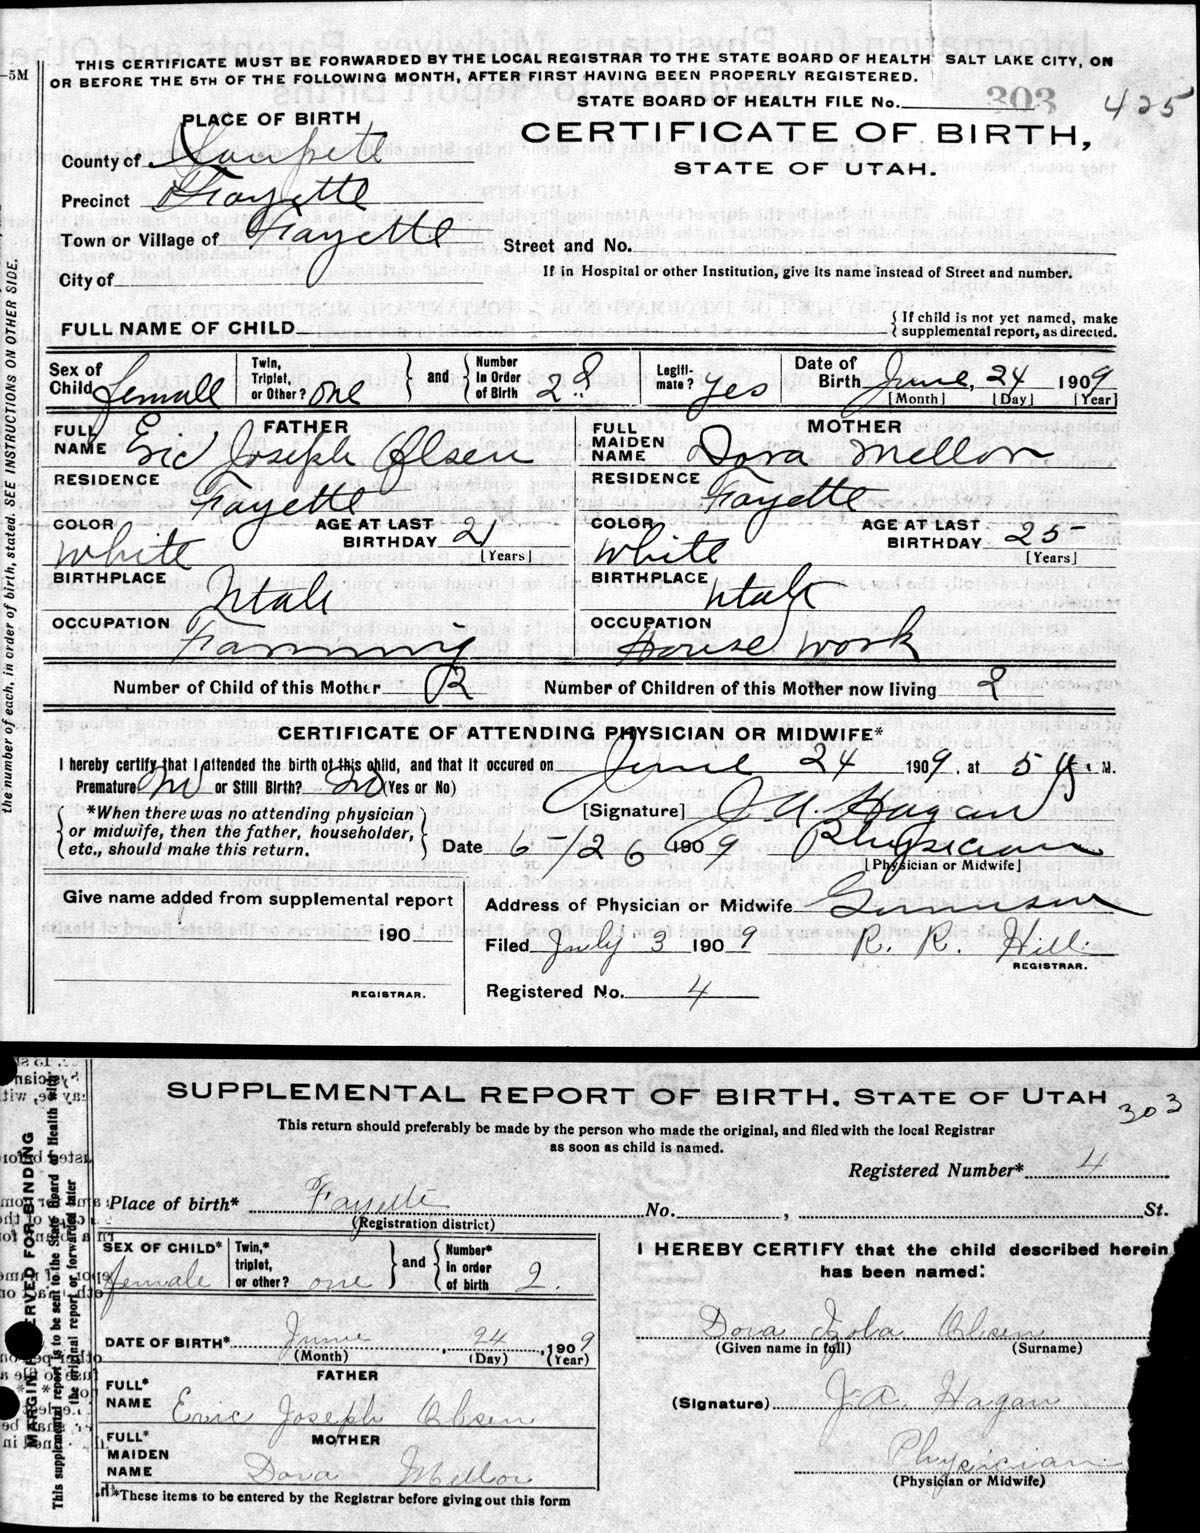 THIS CERTIFICATE MUST BE FORWARDED BY THE LOCAL REGISTRAR TO THE STATE BOARD OF HEALTH SALT LAKE CITY, ON
OR BEFORE THE 5TH OF THE FOLLOWING MONTH, AFTER FIRST HAVING BEEN PROPERLY REGISTERED.
—5M
STATE BOARD OF HEALTH FILE No. 303 425
PLACE OF BIRTH
CERTIFICATE OF BIRTH,
STATE OF UTAH.
County of Sanpete
Precinct Fayette
Town or Village of Fayette
Street and No.
City of
If in Hospital or other Institution, give its name instead of Street and number.
FULL NAME OF CHILD
{ If child is not yet named, make
supplemental report, as directed.
Sex of Child female
Twin, Triplet, or Other? one } and { Number in Order of Birth 2d
Legitimate? yes
Date of Birth June, 24 1909
[Month] [Day] [Year]
FATHER
FULL NAME Eric Joseph Olsen
MOTHER
FULL MAIDEN NAME Dora Mellor
RESIDENCE Fayette
RESIDENCE Fayette
COLOR White AGE AT LAST BIRTHDAY 21 [Years]
COLOR White AGE AT LAST BIRTHDAY 25 [Years]
BIRTHPLACE Utah
BIRTHPLACE Utah
OCCUPATION Farming
OCCUPATION House work
Number of Child of this Mother 2
Number of Children of this Mother now living 2
CERTIFICATE OF ATTENDING PHYSICIAN OR MIDWIFE*
I hereby certify that I attended the birth of this child, and that it occured on June 24 1909, at 5 M.
Premature No or Still Birth? No (Yes or No)
[Signature] J A Hagan
{ *When there was no attending physician
or midwife, then the father, householder,
etc., should make this return. }
Date 6-/26 1909 Physician
[Physician or Midwife]
Give name added from supplemental report
190
REGISTRAR.
Address of Physician or Midwife Gunnison
Filed July 3 1909 R. R. Hill
REGISTRAR.
Registered No. 4
the number of each, in order of birth, stated. SEE INSTRUCTIONS ON OTHER SIDE.
SUPPLEMENTAL REPORT OF BIRTH, STATE OF UTAH 303
This return should preferably be made by the person who made the original, and filed with the local Registrar
as soon as child is named.
Registered Number* 4
Place of birth* Fayette No. , St.
(Registration district)
SEX OF CHILD* female
Twin,* triplet, or other? one } and { Number* in order of birth 2.
DATE OF BIRTH* June 24, 1909
(Month) (Day) (Year)
FATHER
FULL* NAME Eric Joseph Olsen
MOTHER
FULL* MAIDEN NAME Dora Mellor
*These items to be entered by the Registrar before giving out this form
I HEREBY CERTIFY that the child described herein
has been named:
Dora Izola Olsen
(Given name in full) (Surname)
(Signature) J. A. Hagan
Physician
(Physician or Midwife)
This supplemental report is to be sent to the State Board of Health with
the original report or forwarded later